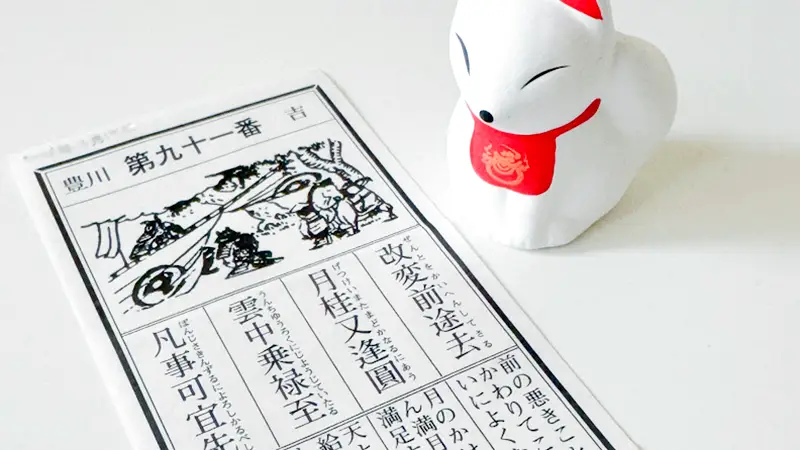 豊川 第九十一番 吉
ぜんとをかいへんしてさる
改変前途去
げつけいまたまどかなるにあう
月桂又逢圓
うんちゆうろくにじようじていたる
雲中乗禄至
ぼんじさきんずるによろしかるべし
凡事可宜先
前の悪きこと
かわりてこ
いによく
月のか
ん満月
満足
天
給